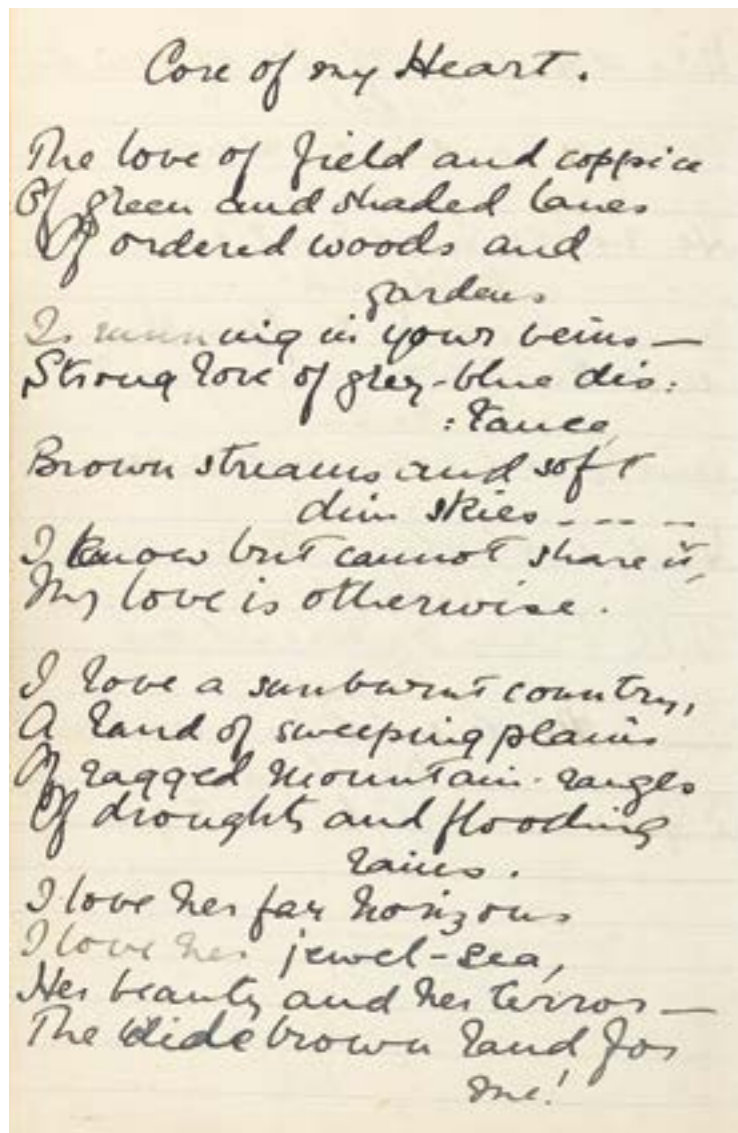 Core of my Heart.
The love of field and coppice
Of green and shaded lanes
Of ordered woods and
gardens
Is running in your veins —
Strong love of grey-blue dis:
:tance,
Brown streams and soft
dim skies - - - -
I know but cannot share it,
My love is otherwise.
I love a sunburnt country,
A land of sweeping plains
Of ragged mountain-ranges
Of droughts and flooding
rains.
I love her far horizons
I love her jewel-sea,
Her beauty and her terror —
The wide brown land for
me!